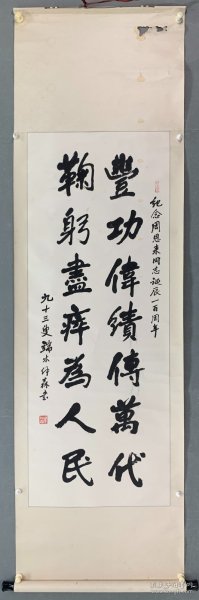 紀念周恩来同志誕辰一百周年
豐功偉績傳萬代
鞠躬盡瘁為人民
九十三叟